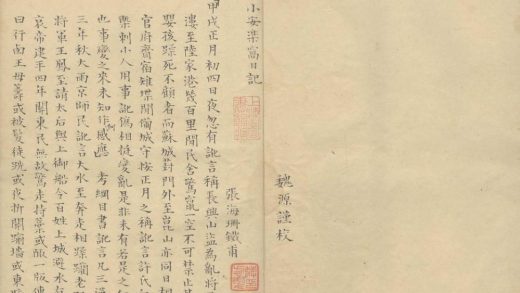 魏源謹校
小安樂窩日記
張海珊鐵甫
甲戌正月初四日夜忽有訛言稱長興山盜為亂將
至陸家港幾百里間民舍驚竄一空不可禁止
嬰孩踩死不顧者而蘇城葑門外至崑山亦同日相
官府齋宿雉堞開備城守按正月之稱訛言許氏
刺小人用事訛偽相挻變亂是非未有若是之
也事變之來未知作何感應 考綱目書訛言凡三
三年秋大雨京師民訛言大水至奔走相蹂躪老
將軍王鳳至請太后與上御船令百姓上城避水
哀帝建平四年關東民無故驚走持藁或棷一
曰行西王母籌或被髮徒跣或夜折關踰墻或車